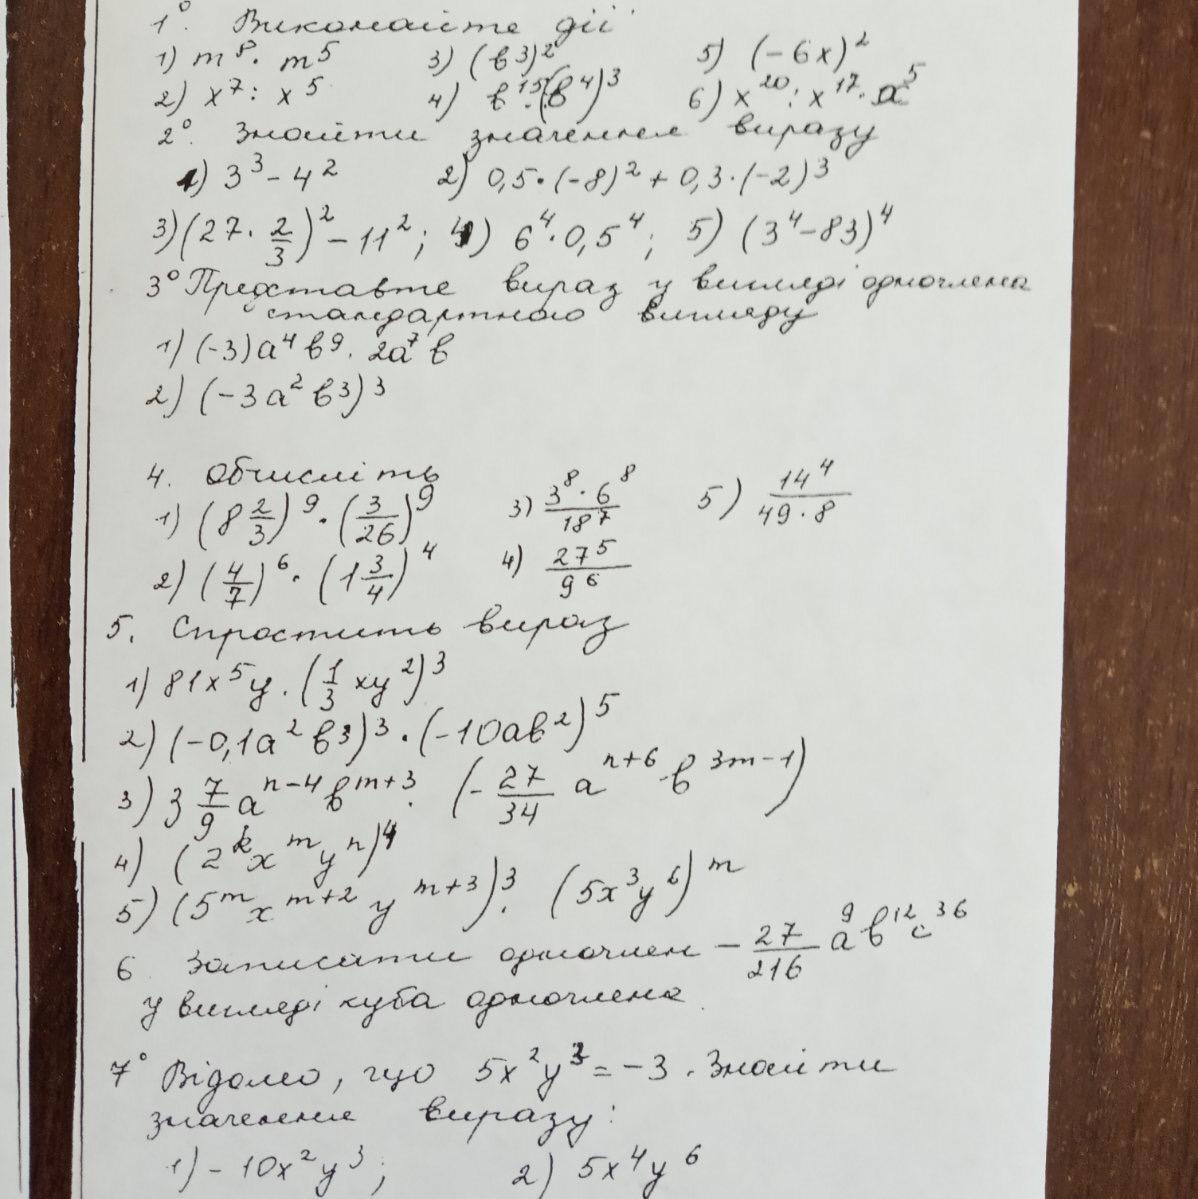 1°. Виконайте дії
1) m⁸ · m⁵ 3) (в³)² 5) (-6x)²
2) x⁷ : x⁵ 4) в¹⁵ · (в⁴)³ 6) x²⁰ : x¹⁷ · a⁵
2°. Знайти значення виразу
1) 3³ - 4² 2) 0,5 · (-8)² + 0,3 · (-2)³
3) (27 · 2/3)² - 11²; 4) 6⁴ · 0,5⁴; 5) (3⁴ - 83)⁴
3° Представте вираз у вигляді одночлена
стандартного вигляду
1) (-3)a⁴в⁹ · 2a⁷в
2) (-3a²в³)³
4. Обчисліть
1) (8 2/3)⁹ · (3/26)⁹ 3) 3⁸ · 6⁸/18⁷ 5) 14⁴/49 · 8
2) (4/7)⁶ · (1 3/4)⁴ 4) 27⁵/9⁶
5. Спростить вираз
1) 81x⁵y · (1/3 xy²)³
2) (-0,1a²в³)³ · (-10aв²)⁵
3) 3 7/9 aⁿ⁻⁴вᵐ⁺³ · (- 27/34 aⁿ⁺⁶ в³ᵐ⁻¹)
4) (2ᵏxᵐyⁿ)⁴
5) (5ᵐxᵐ⁺²yᵐ⁺³)³ · (5x³y⁶)ᵐ
6 Записати одночлен - 27/216 a⁹в¹²c³⁶
у вигляді куба одночлена.
7° Відомо, що 5x²y³ = -3. Знайти
значення виразу:
1) - 10x²y³; 2) 5x⁴y⁶